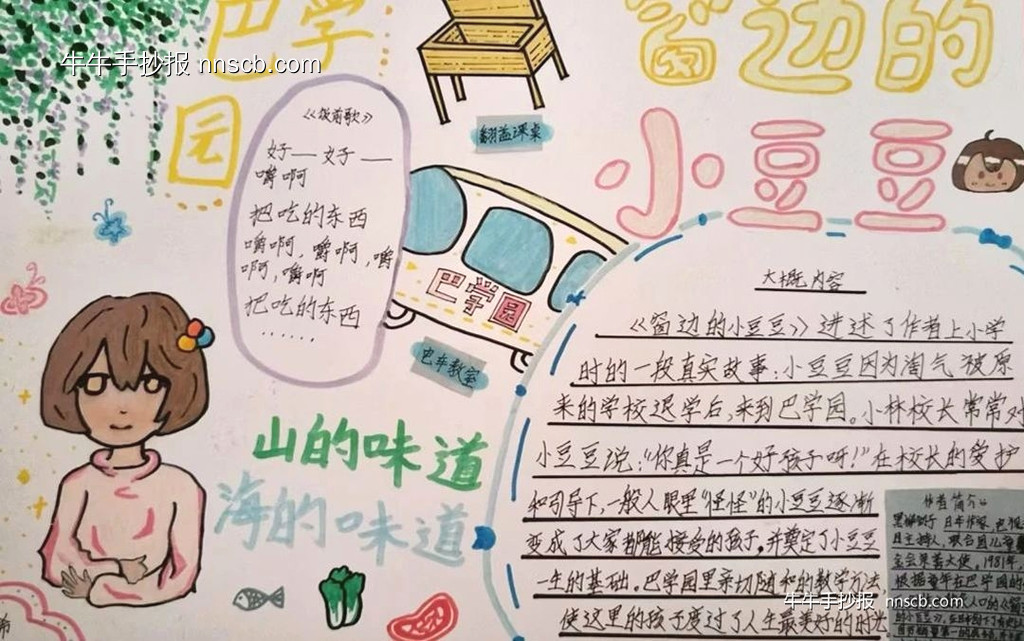 巴学
园
牛牛手抄报 nnscb.com
窗边的
小豆豆
翻盖课桌
《饭前歌》
好——好——
嚼啊
把吃的东西
嚼啊，嚼啊，嚼
啊，嚼啊
把吃的东西
……
巴学园
电车教室
山的味道
海的味道
大概内容
《窗边的小豆豆》讲述了作者上小学
时的一段真实故事：小豆豆因为淘气被原
来的学校退学后，来到巴学园。小林校长常常对
小豆豆说：“你真是一个好孩子呀！”在校长的爱护
和引导下，一般人眼里“怪怪”的小豆豆逐渐
变成了大家都能接受的孩子，并奠定了小豆豆
一生的基础。巴学园里亲切随和的教学方法
使这里的孩子度过了人生最美好的时光
作者简介
黑柳彻子 日本作家，电视
目主持人，联合国儿童
1981年，
根据童年在巴学园的
牛牛手抄报 nnscb.com